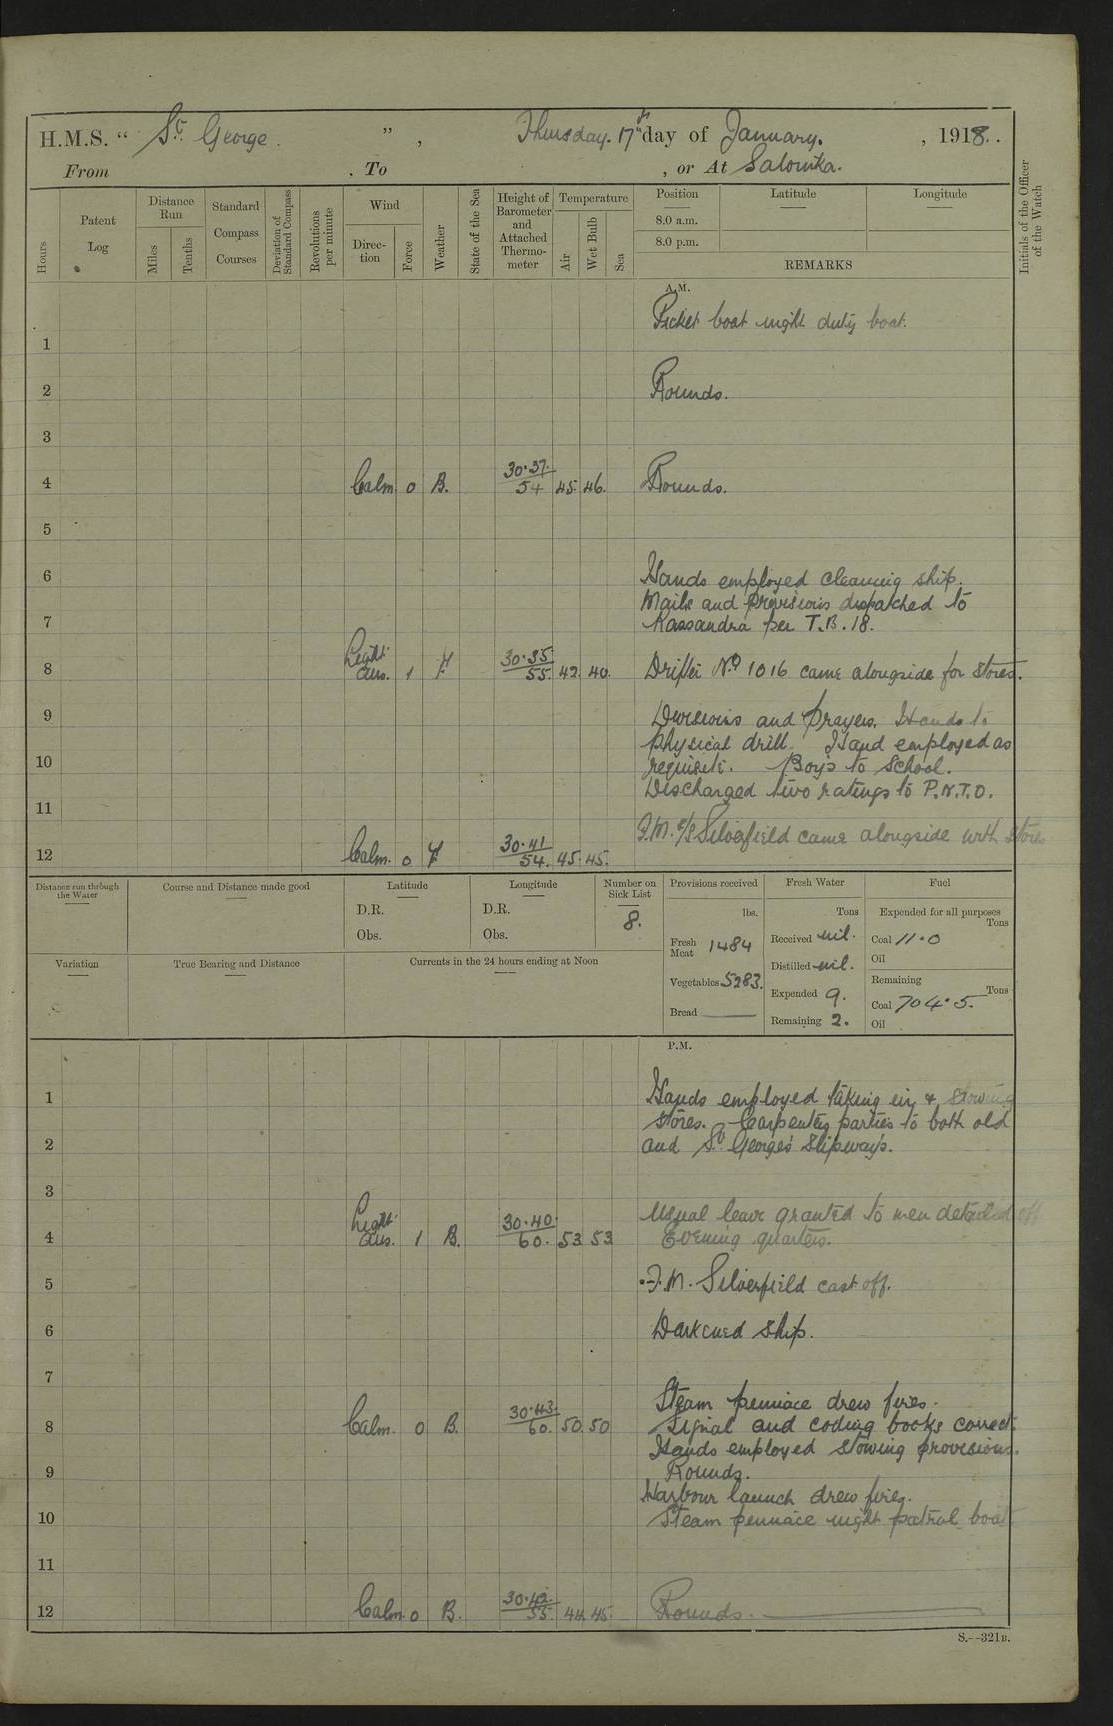 H.M.S. “ St. George. ” , Thursday. 17th day of January. , 1918.
From . To , or At Salonika.
Hours
Patent Log
Distance Run
Miles
Tenths
Standard Compass Courses
Deviation of Standard Compass
Revolutions per minute
Wind
Direction
Force
Weather
State of the Sea
Height of Barometer and Attached Thermometer
Temperature
Air
Wet Bulb
Sea
Position Latitude Longitude
8.0 a.m.
8.0 p.m.
REMARKS
Initials of the Officer of the Watch
A.M.
Picket boat night duty boat.
1
2 Rounds.
3
4 Calm. 0 B. 30.37. 54 45. 46. Rounds.
5
6 Hands employed cleaning ship.
Mails and provisions dispatched to
7 Kassandra per T.B. 18.
8 Light airs. 1 F. 30.35 55. 42. 40. Drifter No. 1016 came alongside for stores.
9 Divisions and Prayers. Hands to
physical drill. Hand employed as
10 requisite. Boys to School.
Discharged two ratings to P.N.T.O.
11
F.M. s/s Silverfield came alongside with stores
12 Calm. 0 F 30.41 54. 45. 45.
Distance run through the Water
Course and Distance made good
Latitude
D.R.
Obs.
Longitude
D.R.
Obs.
Number on Sick List
8.
Provisions received
lbs.
Fresh Meat 1484
Vegetables 5283.
Bread ———
Fresh Water
Tons
Received nil.
Distilled nil.
Expended 9.
Remaining 2.
Fuel
Expended for all purposes
Tons
Coal 11.0
Oil
Remaining
Tons
Coal 704.5.
Oil
Variation
True Bearing and Distance
Currents in the 24 hours ending at Noon
P.M.
1 Hands employed taking in & stowing
stores. Carpenters parties to both old
2 and St George's Slipways.
3
Usual leave granted to men detailed off
4 Light airs. 1 B. 30.40. 60. 53 53 Evening quarters.
5 F.M. Silverfield cast off.
6 Darkened ship.
7
Steam pinnace drew fires.
8 Calm. 0 B. 30.43. 60. 50 50 Signal and coding books correct.
Hands employed stowing provisions.
9 Rounds.
Harbour launch drew fires.
10 Steam pinnace night patrol boat.
11
12 Calm 0 B. 30.42. 55. 44. 45. Rounds.
S.—321B.